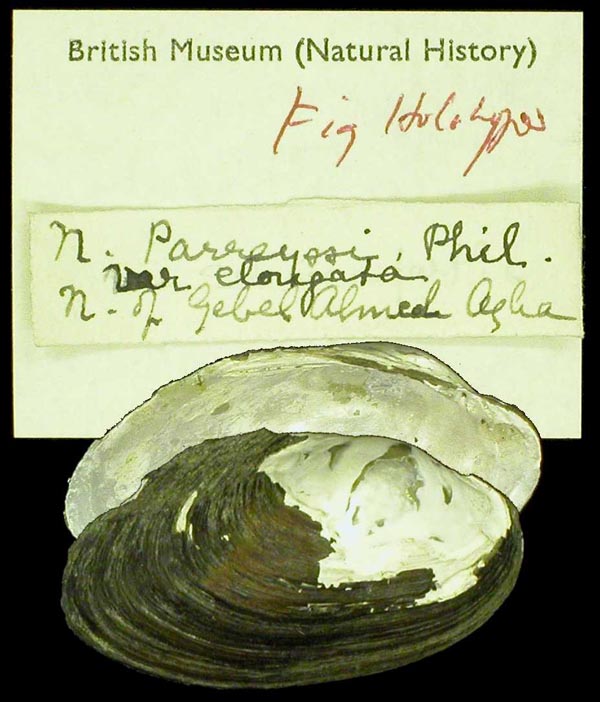 British Museum (Natural History)
Fig Holotype
N. Parreyssi, Phil.
var elongata
N. of Gebel Ahmed Agha